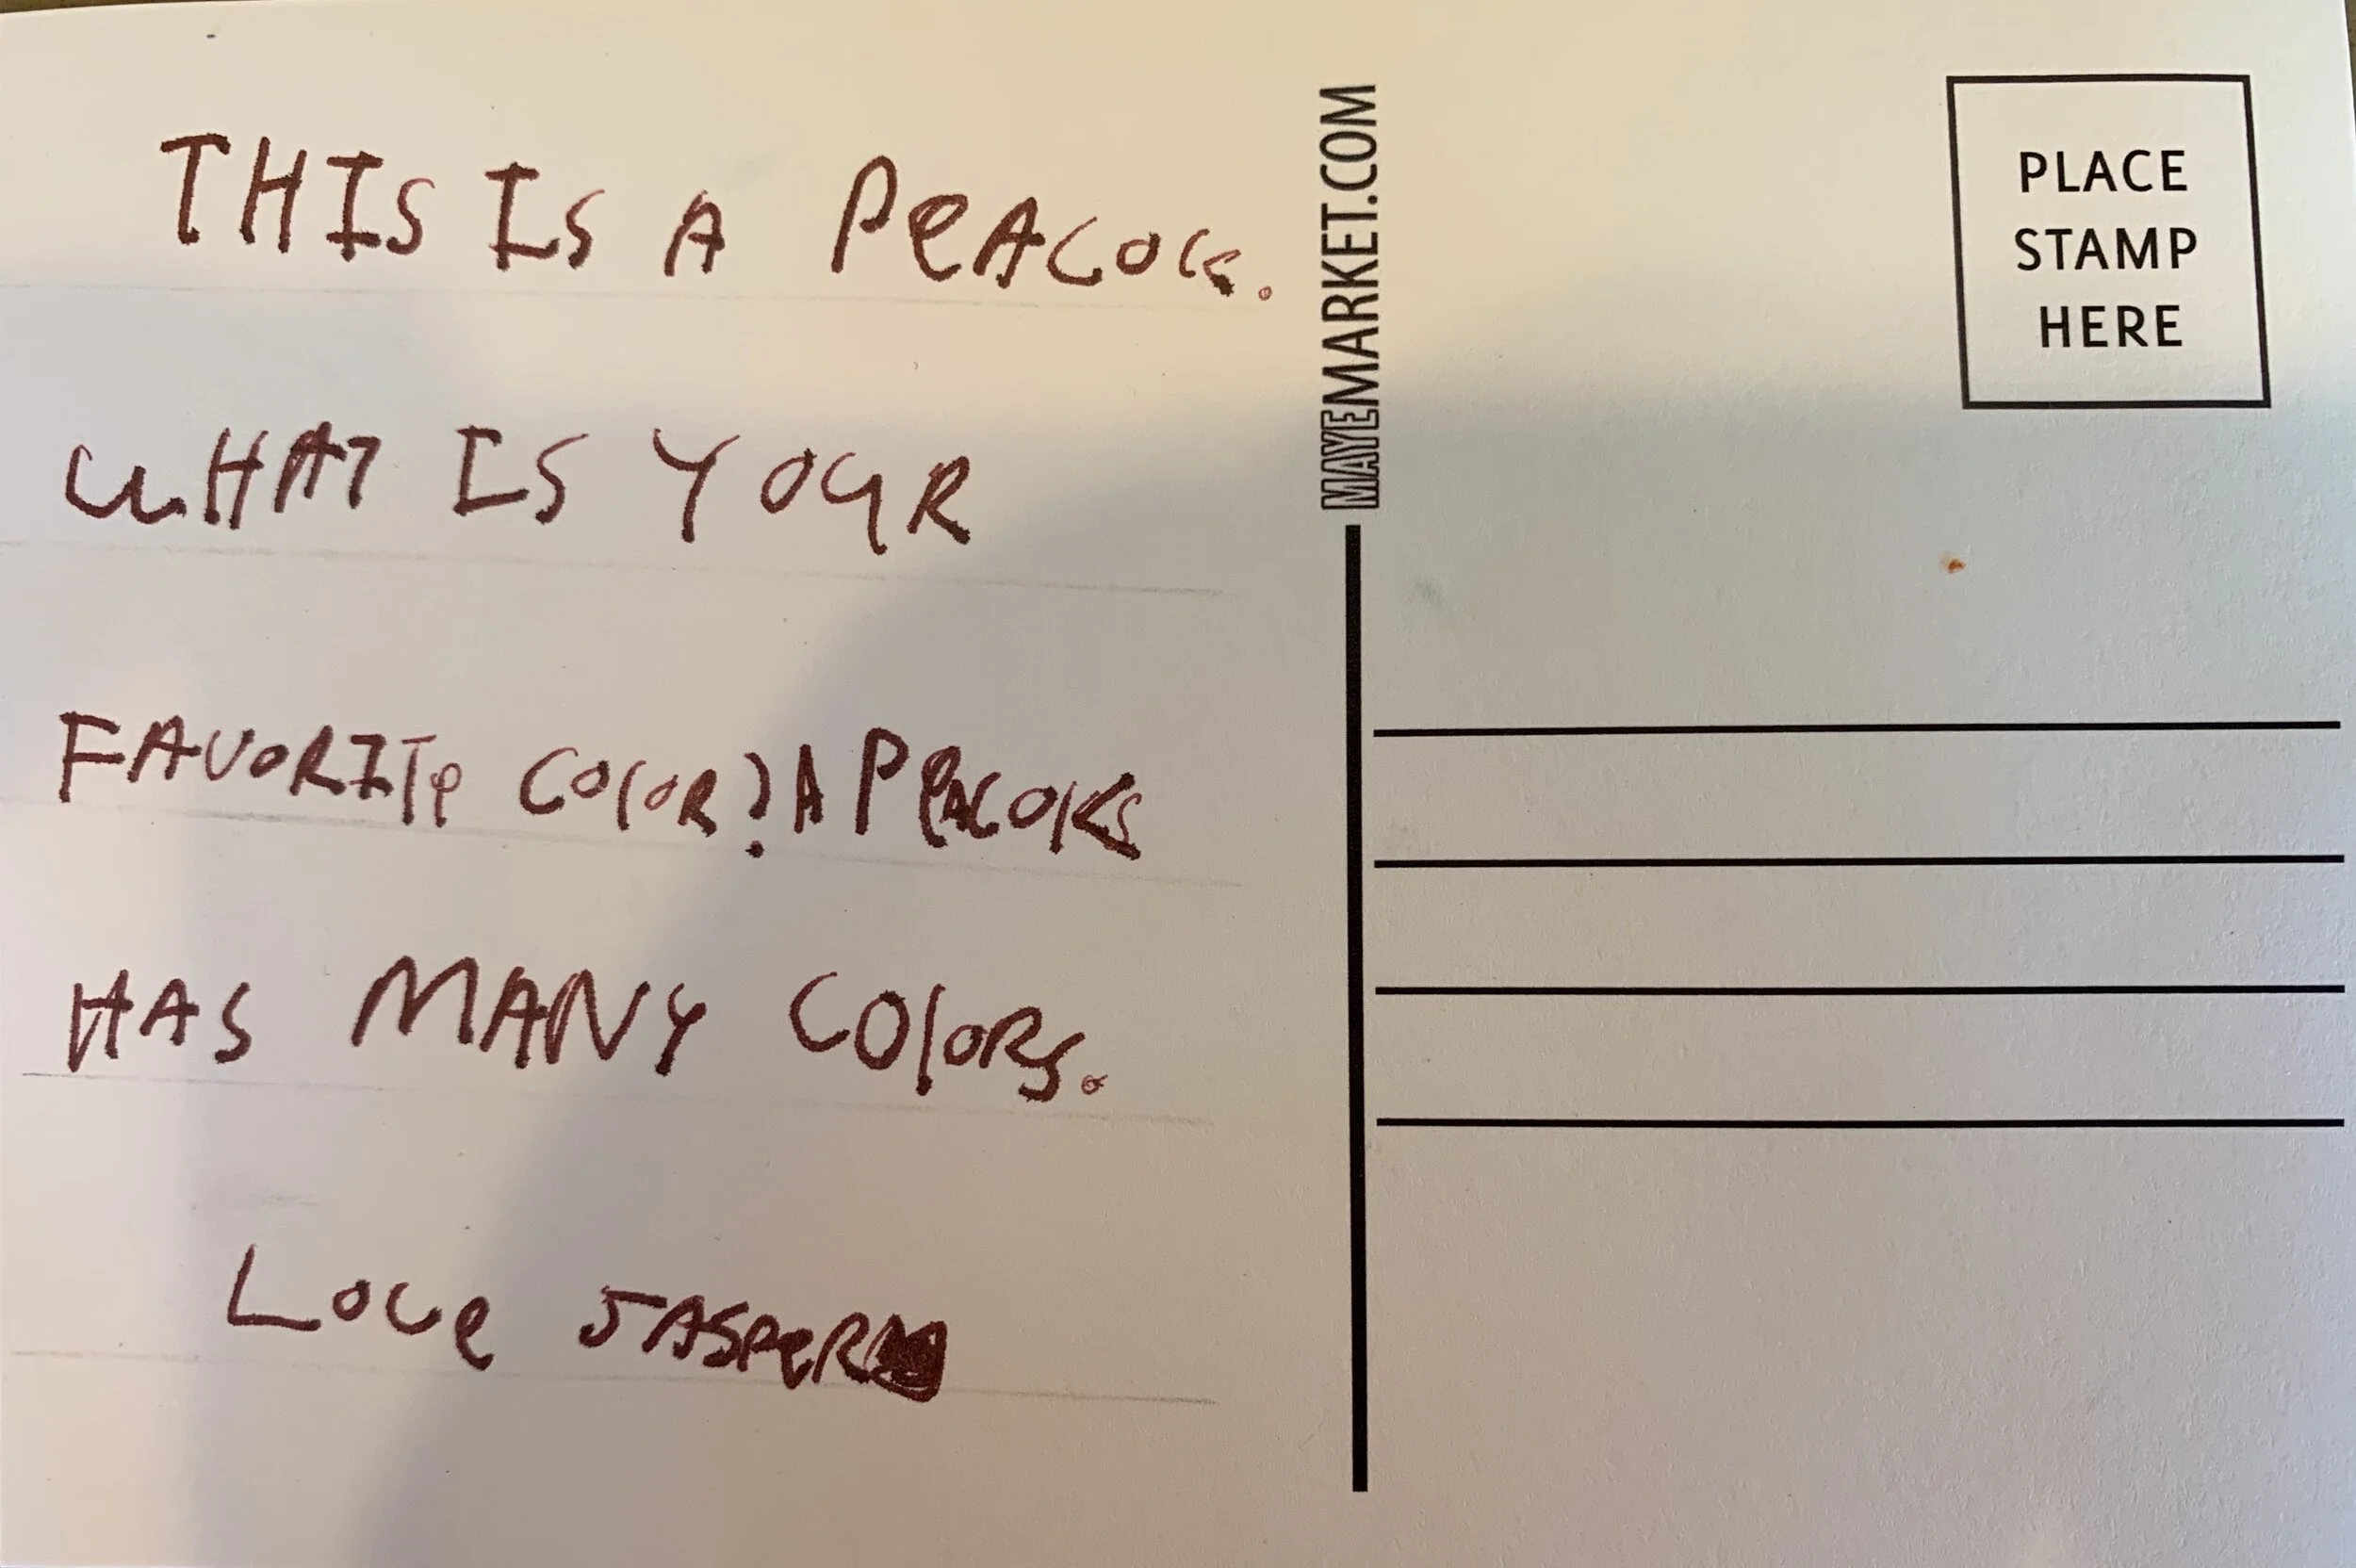 THIS IS A PeACOCK.
WHAT IS YOUR
FAVORITe COlOR? A PeACOKS
HAS MANY COlORS.
LOVe JASPeR
MAYEMARKET.COM
PLACE
STAMP
HERE